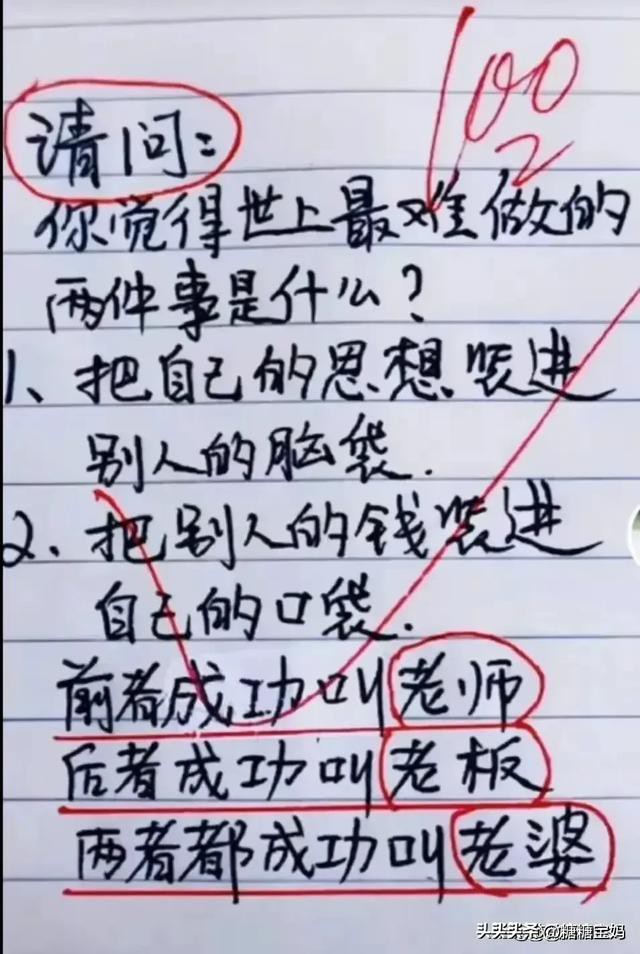 100
请问：
你觉得世上最难做的
两件事是什么？
1、把自己的思想装进
别人的脑袋.
2、把别人的钱装进
自己的口袋.
前者成功叫老师
后者成功叫老板
两者都成功叫老婆
头条 @糖糖宝妈